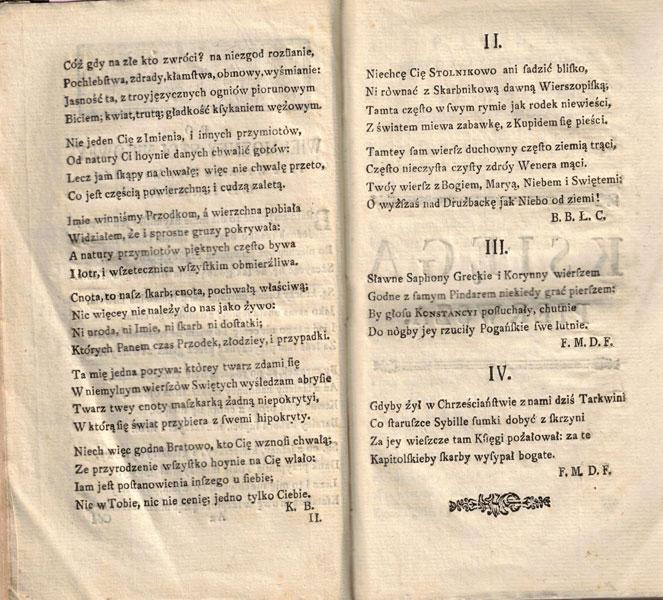 Cóż gdy na złe kto zwróci? na niezgod rozſianie,
Pochlebſtwa, zdrady, kłamſtwa, obmowy, wyśmianie:
Jasność ta, z troyjęzycznych ogniów piorunowym
Biciem; kwiat, trutą; gładkość kſykaniem wężowym.
Nie jeden Cię z Imienia, i innych przymiotów,
Od natury Ci hoynie danych chwalić gotów:
Lecz jam ſkąpy na chwałę; więc nie chwalę przeto,
Co jeſt częścią powierzchną; i cudzą zaletą.
Imie winniśmy Przodkom, á wierzchna pobiała
Widziałem, że i sprosne gruzy pokrywała:
A natury przymiotów pięknych często bywa
I łotr, i wſzetecznica wſzyſtkim obmierźliwa.
Cnota, to naſz ſkarb; cnota, pochwałą właściwą;
Nic więcey nie należy do nas jako żywo:
Ni uroda, ni Imie, ni ſkarb ni doſtatki;
Których Panem czas Przodek, złodziey, i przypadki.
Ta mię jedna porywa: którey twarz zdami ſię
W niemylnym wierſzów Swiętych wyśledzam abryſie
Twarz twey cnoty maſzkarką żadną niepokrytyi,
W którą ſię świat przybiera z ſwemi hipokryty.
Niech więc godna Bratowo, kto Cię wznoſi chwałą;
Ze przyrodzenie wſzyſtko hoynie na Cię wlało:
Iam jeſt poſtanowienia inſzego u ſiebie;
Nic w Tobie, nic nie cenię; jedno tylko Ciebie.
K. B.
II.
II.
Niechcę Cię STOLNIKOWO ani ſadzić bliſko,
Ni rôwnać z Skarbnikową dawną Wierszopiſką;
Tamta często w ſwym rymie jak rodek niewieści,
Z światem miewa zabawkę, z Kupidem ſię pieści.
Tamtey ſam wierſz duchowny często ziemią trąci,
Często nieczysta czysty zdróy Wenera mąci.
Twóy wierſz z Bogiem, Maryą, Niebem i Swiętemi;
O wyżſzaś nad Drużbackę jak Niebo od ziemi!
B. B. Ł. C.
III.
Sławne Saphony Greckie i Korynny wierſzem
Godne z ſamym Pindarem niekiedy grać pierſzem:
By głoſu KONSTANCYI poſłuchały, chutnie
Do nôgby jey rzuciły Pogańſkie ſwe lutnie.
F. M. D. F.
IV.
Gdyby żył w Chrześciańſtwie z nami dziś Tarkwini
Co ſtaruſzce Sybille ſumki dobyć z ſkrzyni
Za jey wieſzcze tam Kſięgi pożałował: za te
Kapitolſkieby ſkarby wyſypał bogate.
F. M. D. F.